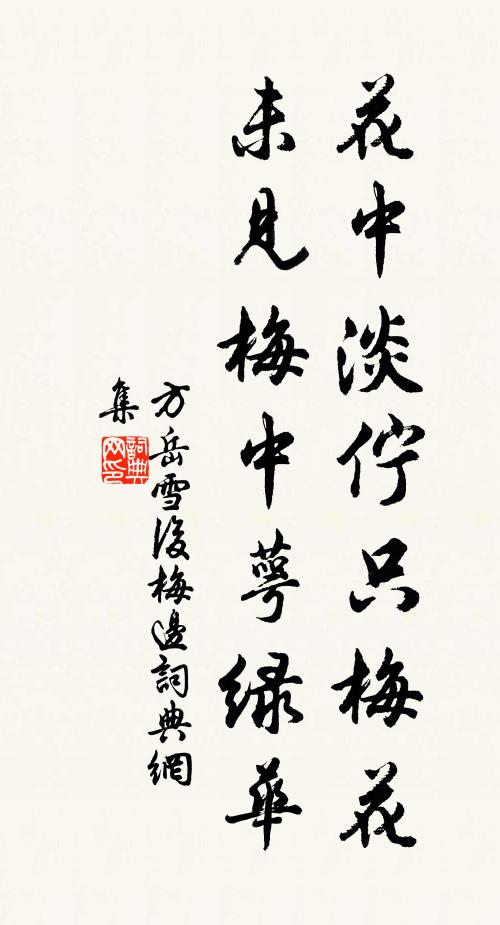 花中淡佇只梅花
未見梅中萼緑華
方岳雪後梅邊詞典網
集
詞典网印